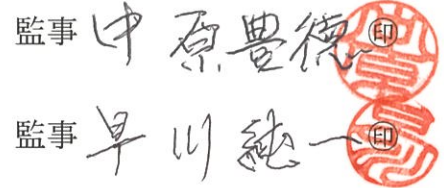 監事 中原豊徳 ㊞
監事 早川純一 ㊞